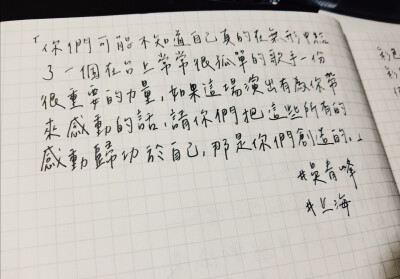 「你們可能不知道自己真的在無形中給
了一個在台上常常很孤單的歌手一份
很重要的力量,如果這場演出有為你帶
來感動的話,請你們把這些所有的
感動歸功於自己,那是你們創造的。」
#吳青峰
#上海